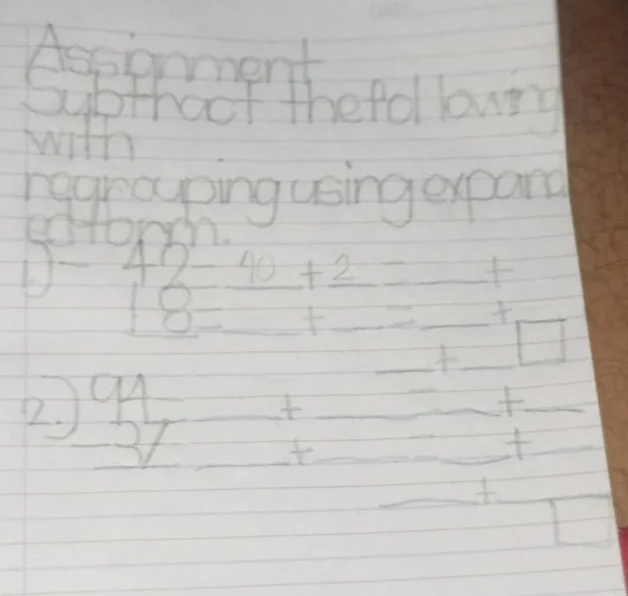 Assignment
Subtract the following
with
regrouping using expand
ed form.
1.) - 42 = 40 + 2 = ___ +
18 = ___ + ___ = ___ +
___ + ___ □
2.) 94 ___ + ___ ___ + ___
37 ___ + ___ ___ + ___
___ + ___ □